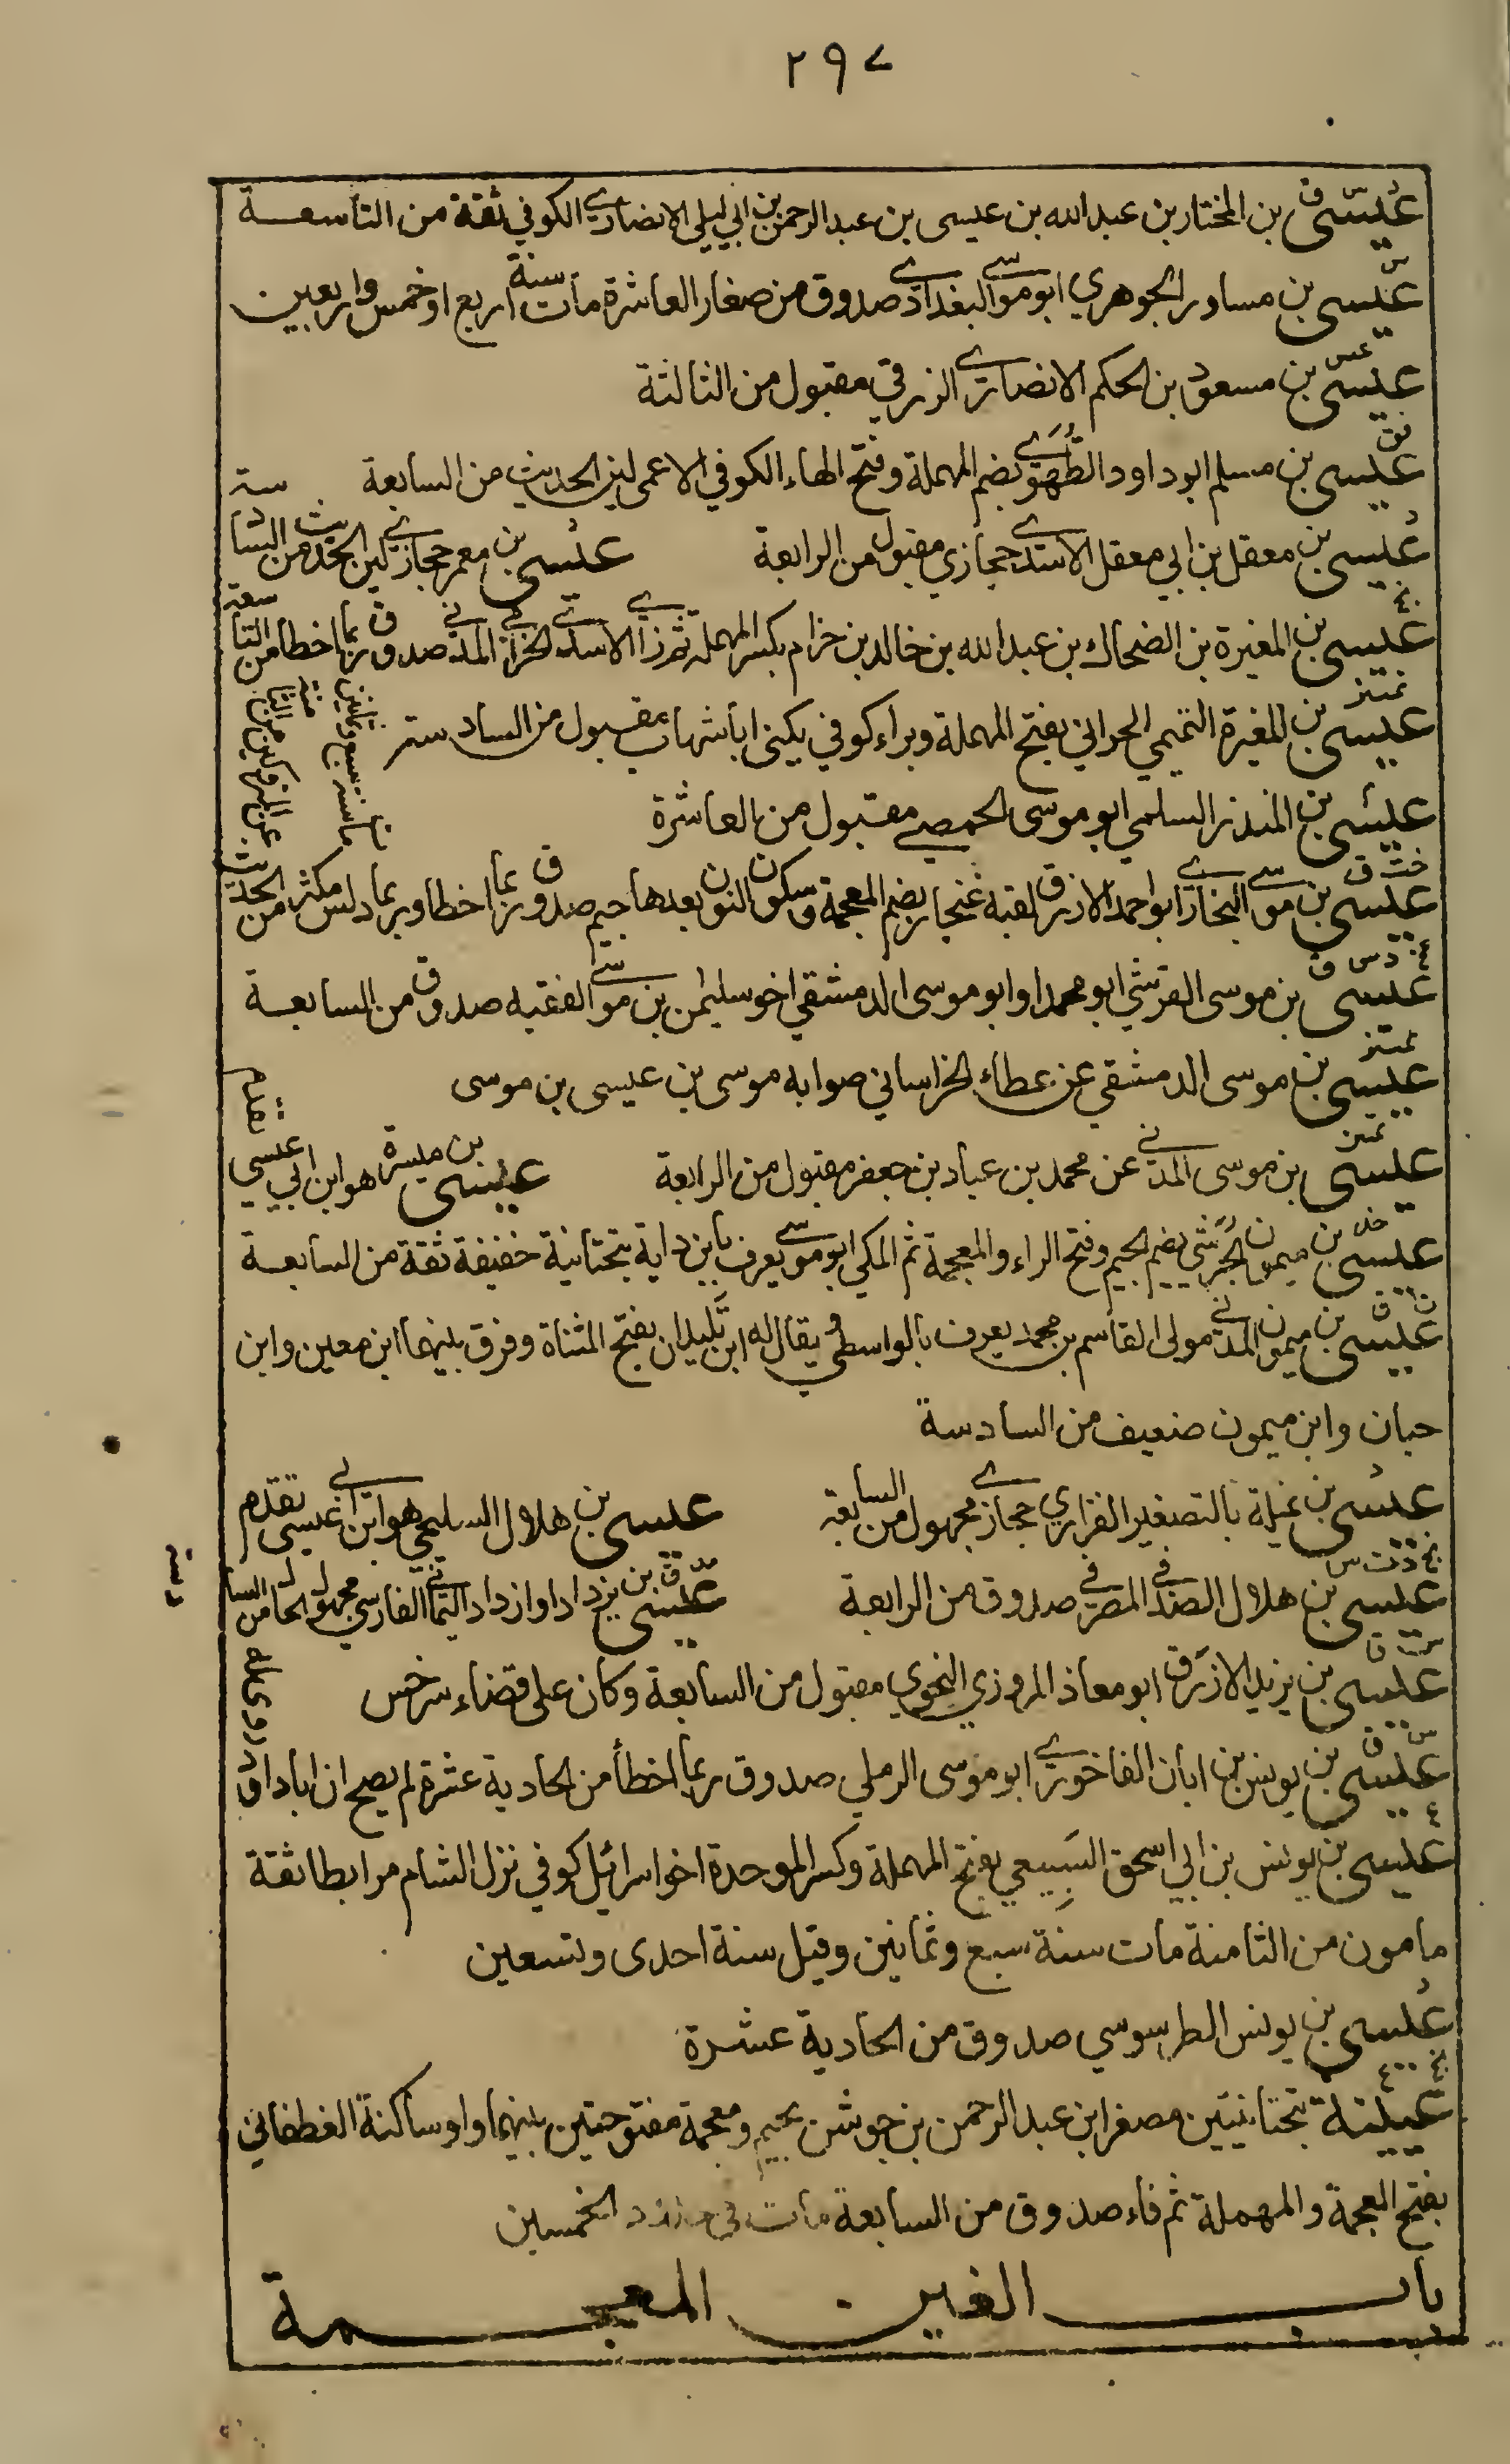 ٢٩٧
عيسى بن المختار بن عبد الله بن عيسى بن عبد الرحمن بن ابي ليلى الانصاري الكوفي ثقة من التاسعة
عيسى بن مساور الجوهري ابو موسى البغدادي صدوق من صغار العاشرة مات سنة اربع او خمس واربعين
عيسى بن مسعود بن الحكم الانصاري الزرقي مقبول من الثالثة
عيسى بن مسلم ابو داود الطُهَوي بضم المهملة وفتح الهاء الكوفي الاعمى لين الحديث من السابعة
عيسى بن معقل بن ابي معقل الاسدي حجازي مقبول من الرابعة عيسى بن معمر حجازي لين الحديث من السادسة
عيسى بن المغيرة بن الضحاك بن عبد الله بن خالد بن حزام بكسر المهملة ثم زاي الاسدي الحزامي المدني صدوق ربما اخطا من التاسعة
عيسى بن المغيرة التميمي الحراني بفتح المهملة وبراء كوفي يكنى ابا شهاب مقبول من السادسة
عيسى بن المنذر السلمي ابو موسى الحمصي مقبول من العاشرة
عيسى بن موسى البخاري ابو احمد الازرق لقبه غنجار بضم المعجمة وسكون النون بعدها جيم صدوق ربما اخطا وربما دلس مكثر من الحديث
عن المتروكين من الثامنة
مات سنة سبع وثمانين
عيسى بن موسى القرشي ابو محمد او ابو موسى الدمشقي اخو سليمن بن موسى الفقيه صدوق من السابعة
عيسى بن موسى الدمشقي عن عطاء الخراساني صوابه موسى بن عيسى بن موسى
عيسى بن موسى المدني عن محمد بن عباد بن جعفر مقبول من الرابعة عيسى بن ميسرة هو ابن ابي عيسى تقدم
عيسى بن ميمون الجُرَشي بضم الجيم وفتح الراء والمعجمة ثم المكي ابو موسى يعرف بابن داية بتحتانية خفيفة ثقة من السابعة
عيسى بن ميمون المدني مولى القاسم بن محمد يعرف بالواسطي ويقال له ابن تَليدان بفتح المثناة وفرق بينهما ابن معين وابن
حبان وابن ميمون ضعيف من السادسة
عيسى بن نميلة بالتصغير الفزاري حجازي مجهول من السابعة عيسى بن هلال السليحي هو ابن ابي عيسى تقدم
عيسى بن هلال الصدفي المصري صدوق من الرابعة عيسى بن يزداد او ازداد اليماني الفارسي مجهول الحال من السادسة
عيسى بن يزيد الازرق ابو معاذ المروزي النحوي مقبول من السابعة وكان على قضاء سرخس
عيسى بن يونس بن ابان الفاخوري ابو موسى الرملي صدوق ربما اخطأ من الحادية عشرة لم يصح ان ابا داود روى له
عيسى بن يونس بن ابي اسحق السَبِيعي بفتح المهملة وكسر الموحدة اخو اسرائيل كوفي نزل الشام مرابطا ثقة
مامون من الثامنة مات سنة سبع وثمانين وقيل سنة احدى وتسعين
عيسى بن يونس الطرسوسي صدوق من الحادية عشرة
عيينة بتحتانيتين مصغر ابن عبد الرحمن بن جوشن بجيم ومعجمة مفتوحتين بينهما واو ساكنة الغطفاني
بفتح المعجمة والمهملة ثم فاء صدوق من السابعة مات في حدود الخمسين
باب الغين المعجمة